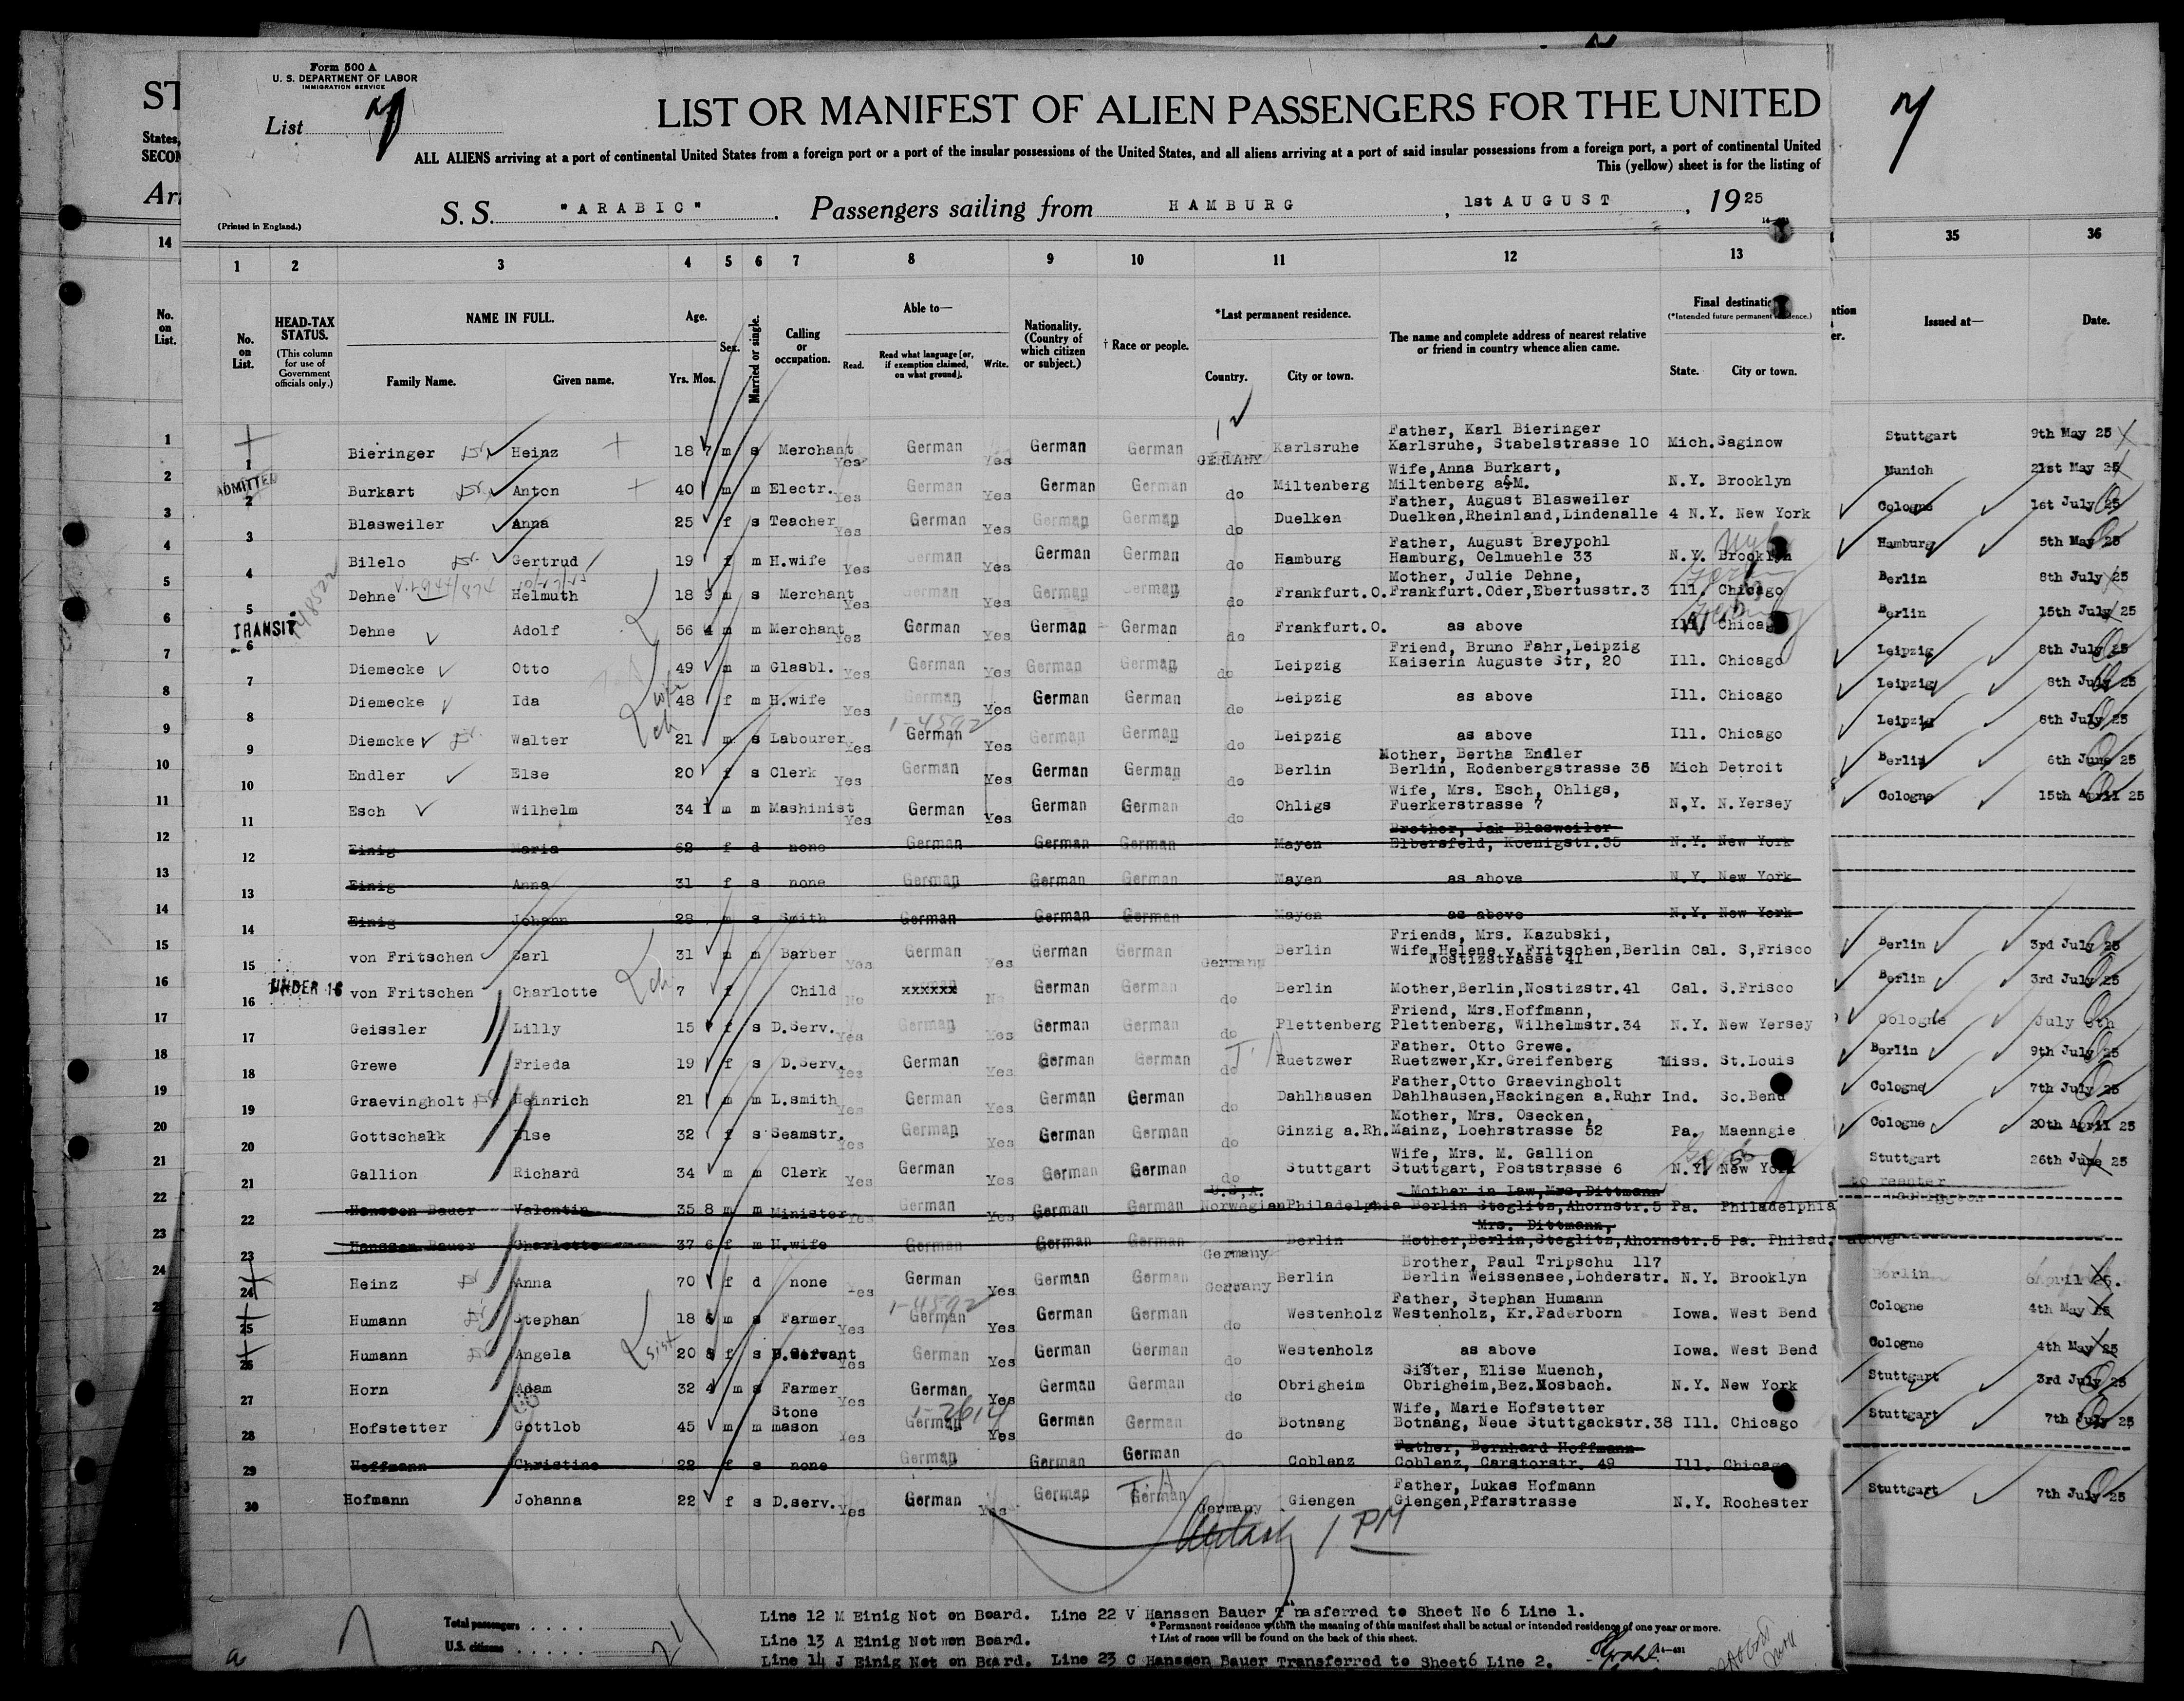 Form 500 A
U. S. DEPARTMENT OF LABOR
IMMIGRATION SERVICE
List 7
LIST OR MANIFEST OF ALIEN PASSENGERS FOR THE UNITED
7
ST
States,
SECON
ALL ALIENS arriving at a port of continental United States from a foreign port or a port of the insular possessions of the United States, and all aliens arriving at a port of said insular possessions from a foreign port, a port of continental United
This (yellow) sheet is for the listing of
Arr
(Printed in England.)
S. S. "ARABIC". Passengers sailing from HAMBURG, 1st AUGUST, 1925
14 1 2 3 4 5 6 7 8 9 10 11 12 13 35 36
No. on List.
No. on List.
HEAD-TAX STATUS. (This column for use of Government officials only.)
NAME IN FULL. Family Name. Given name.
Age. Yrs. Mos.
Sex.
Married or single.
Calling or occupation.
Able to— Read. Read what language [or, if exemption claimed, on what ground]. Write.
Nationality. (Country of which citizen or subject.)
† Race or people.
*Last permanent residence. Country. City or town.
The name and complete address of nearest relative or friend in country whence alien came.
Final destination (*Intended future permanent residence.) State. City or town.
Issued at— Date.
Father, Karl Bieringer
1 1 Bieringer Heinz 18 7 m s Merchant Yes German Yes German German GERMANY Karlsruhe Karlsruhe, Stabelstrasse 10 Mich. Saginow Stuttgart 9th May 25
Wife, Anna Burkart,
2 ADMITTED 2 Burkart Anton 40 m m Electr. Yes German Yes German German do Miltenberg Miltenberg a/M. N.Y. Brooklyn Munich 21st May 25
Father, August Blasweiler
3 3 Blasweiler Anna 25 f s Teacher Yes German Yes German German do Duelken Duelken,Rheinland,Lindenalle 4 N.Y. New York Cologne 1st July 25
Father, August Breypohl
4 4 Bilelo Gertrud 19 f m H.wife Yes German Yes German German do Hamburg Hamburg, Oelmuehle 33 N.Y. Brooklyn Hamburg 5th May 25
Mother, Julie Dehne,
5 5 Dehne Helmuth 18 9 m s Merchant Yes German Yes German German do Frankfurt.O. Frankfurt.Oder,Ebertusstr.3 Ill. Chicago Berlin 8th July 25
6 TRANSIT 6 Dehne Adolf 56 4 m m Merchant Yes German Yes German German do Frankfurt.O. as above Ill. Chicago Berlin 15th July 25
Friend, Bruno Fahr,Leipzig
7 7 Diemecke Otto 49 m m Glasbl. Yes German Yes German German do Leipzig Kaiserin Auguste Str, 20 Ill. Chicago Leipzig 8th July 25
8 8 Diemecke Ida wife 48 f m H.wife Yes German Yes German German do Leipzig as above Ill. Chicago Leipzig 8th July 25
1-4592
9 9 Diemcke Walter ch 21 m s Labourer Yes German Yes German German do Leipzig as above Ill. Chicago Leipzig 8th July 25
Mother, Bertha Endler
10 10 Endler Else 20 f s Clerk Yes German Yes German German do Berlin Berlin, Rodenbergstrasse 36 Mich Detroit Berlin 6th June 25
Wife, Mrs. Esch, Ohligs,
11 11 Esch Wilhelm 34 1 m m Mashinist Yes German Yes German German do Ohligs Fuerkerstrasse 7 N,Y. N.Yersey Cologne 15th April 25
Brother, Jak Blasweiler
12 12 Einig Maria 62 f d none German German German Mayen Elbersfeld, Koenigstr.35 N.Y. New York
13 13 Einig Anna 31 f s none German German German Mayen as above N.Y. New York
14 14 Einig Johann 28 m s Smith German German German Mayen as above N.Y. New York
Friends, Mrs. Kazubski,
15 15 von Fritschen Carl 31 m m Barber Yes German Yes German German Germany Berlin Wife,Helene v.Fritschen,Berlin Cal. S,Frisco Berlin 3rd July 25
Nostizstrasse 41
16 UNDER 16 16 von Fritschen Charlotte ch 7 f Child No xxxxxx No German German do Berlin Mother,Berlin,Nostizstr.41 Cal. S.Frisco Berlin 3rd July 25
Friend, Mrs.Hoffmann,
17 17 Geissler Lilly 15 f s D.Serv. Yes German Yes German German do Plettenberg Plettenberg, Wilhelmstr.34 N.Y. New Yersey Cologne July 8th
Father. Otto Grewe.
18 18 Grewe Frieda 19 f s D.Serv. Yes German Yes German German do Ruetzwer Ruetzwer,Kr.Greifenberg Miss. St.Louis Berlin 9th July 25
Father,Otto Graevingholt
19 19 Graevingholt Heinrich 21 m m L.smith Yes German Yes German German do Dahlhausen Dahlhausen,Hackingen a.Ruhr Ind. So.Bend Cologne 7th July 25
Mother, Mrs. Osecken,
20 20 Gottschalk Else 32 f s Seamstr. Yes German Yes German German do Ginzig a.Rh. Mainz, Loehrstrasse 52 Pa. Maenngie Cologne 20th April 25
Wife, Mrs. M. Gallion
21 21 Gallion Richard 34 m m Clerk Yes German Yes German German do Stuttgart Stuttgart, Poststrasse 6 N.Y. New York Stuttgart 26th June 25
U.S.A. Mother in Law,Mrs.Dittmann to reenter
22 22 Hanssen Bauer Valentin 35 8 m m Minister Yes German Yes German German Norwegian Philadelphia Berlin Steglitz,Ahornstr.5 Pa. Philadelphia Washington
Mrs. Dittmann,
23 23 Hanssen Bauer Charlotte 37 6 f m H.wife German German German Germany Berlin Mother,Berlin,Steglitz,Ahornstr.5 Pa. Philad. above
Brother, Paul Tripschu 117
24 24 Heinz Anna 70 f d none Yes German Yes German German Germany Berlin Berlin Weissensee,Lohderstr. N.Y. Brooklyn Berlin 6April 25.
1-4592 Father, Stephan Humann
25 25 Humann Stephan 18 6 m s Farmer Yes German Yes German German do Westenholz Westenholz, Kr.Paderborn Iowa. West Bend Cologne 4th May 25
26 Humann Angela sist 20 8 f s Yes German Yes German German do Westenholz as above Iowa. West Bend Cologne 4th May 25
Sister, Elise Muench,
27 Horn Adam 32 4 m s Farmer Yes German Yes German German do Obrigheim Obrigheim,Bez.Mosbach. N.Y. New York Stuttgart 3rd July 25
Stone 1-2614 Wife, Marie Hofstetter
28 Hofstetter Gottlob 45 m m mason Yes German Yes German German do Botnang Botnang, Neue Stuttgackstr.38 Ill. Chicago Stuttgart 7th July 25
Father, Bernhard Hoffmann
29 Hoffmann Christine 22 f s none German German German Coblenz Coblenz, Carstorstr. 49 Ill. Chicago
Father, Lukas Hofmann
30 Hofmann Johanna 22 f s D.serv. Yes German Yes German German Germany Giengen Giengen,Pfarstrasse N.Y. Rochester Stuttgart 7th July 25
1 PM
Total passengers
U.S. citizens
Line 12 M Einig Not on Board. Line 22 V Hanssen Bauer Trnasferred to Sheet No 6 Line 1.
* Permanent residence within the meaning of this manifest shall be actual or intended residence of one year or more.
† List of races will be found on the back of this sheet.
Line 13 A Einig Not on Board.
Line 14 J Einig Not on Board. Line 23 C Hanssen Bauer Transferred to Sheet6 Line 2.